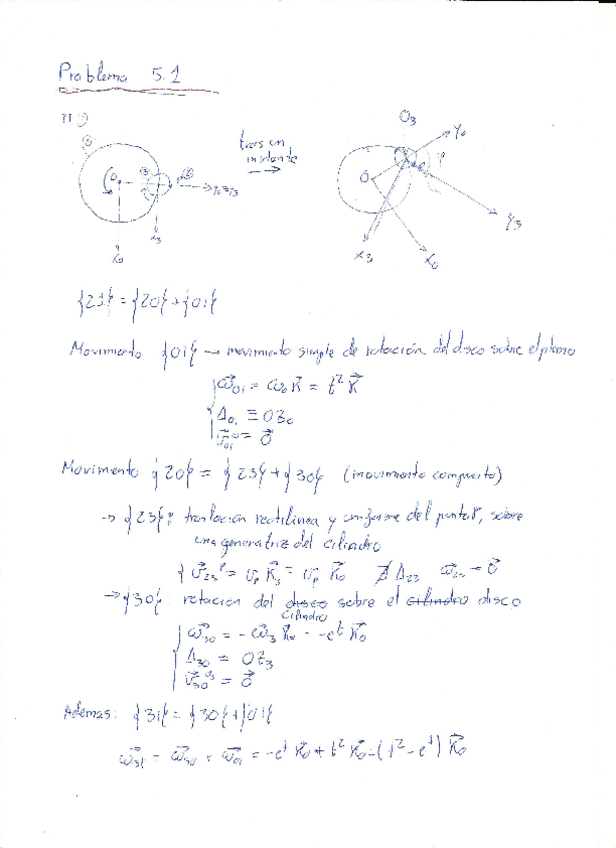 Problema 5.1
tras un
instante
O₃
Y₀
O
X₀
X₃
Y₃
{21} = {20} + {01}
Movimiento {01} → movimiento simple de rotación del disco sobre el plano
ω⃗₀₁ = ω₀ K⃗ = t² K⃗
Δ₀₁ ≡ OZ₀
v⃗₀₁⁰ = 0⃗
Movimiento {20} = {23} + {30} (movimiento compuesto)
→ {23}: traslación rectilínea y uniforme del punto P, sobre
una generatriz del cilindro
v⃗₂₃ᴾ = vₚ K⃗₃ = vₚ K⃗₀ ∄ Δ₂₃ ω⃗₂₃ = 0⃗
→ {30}: rotación del disco cilindro sobre el cilindro disco
ω⃗₃₀ = -ω₃ K⃗₀ = -eᵗ K⃗₀
Δ₃₀ = OZ₃
v⃗₃₀ᴼ³ = 0⃗
Ademas: {31} = {30} + {01}
ω⃗₃₁ = ω⃗₃₀ + ω⃗₀₁ = -eᵗ K⃗₀ + t² K⃗₀ = (t² - eᵗ) K⃗₀